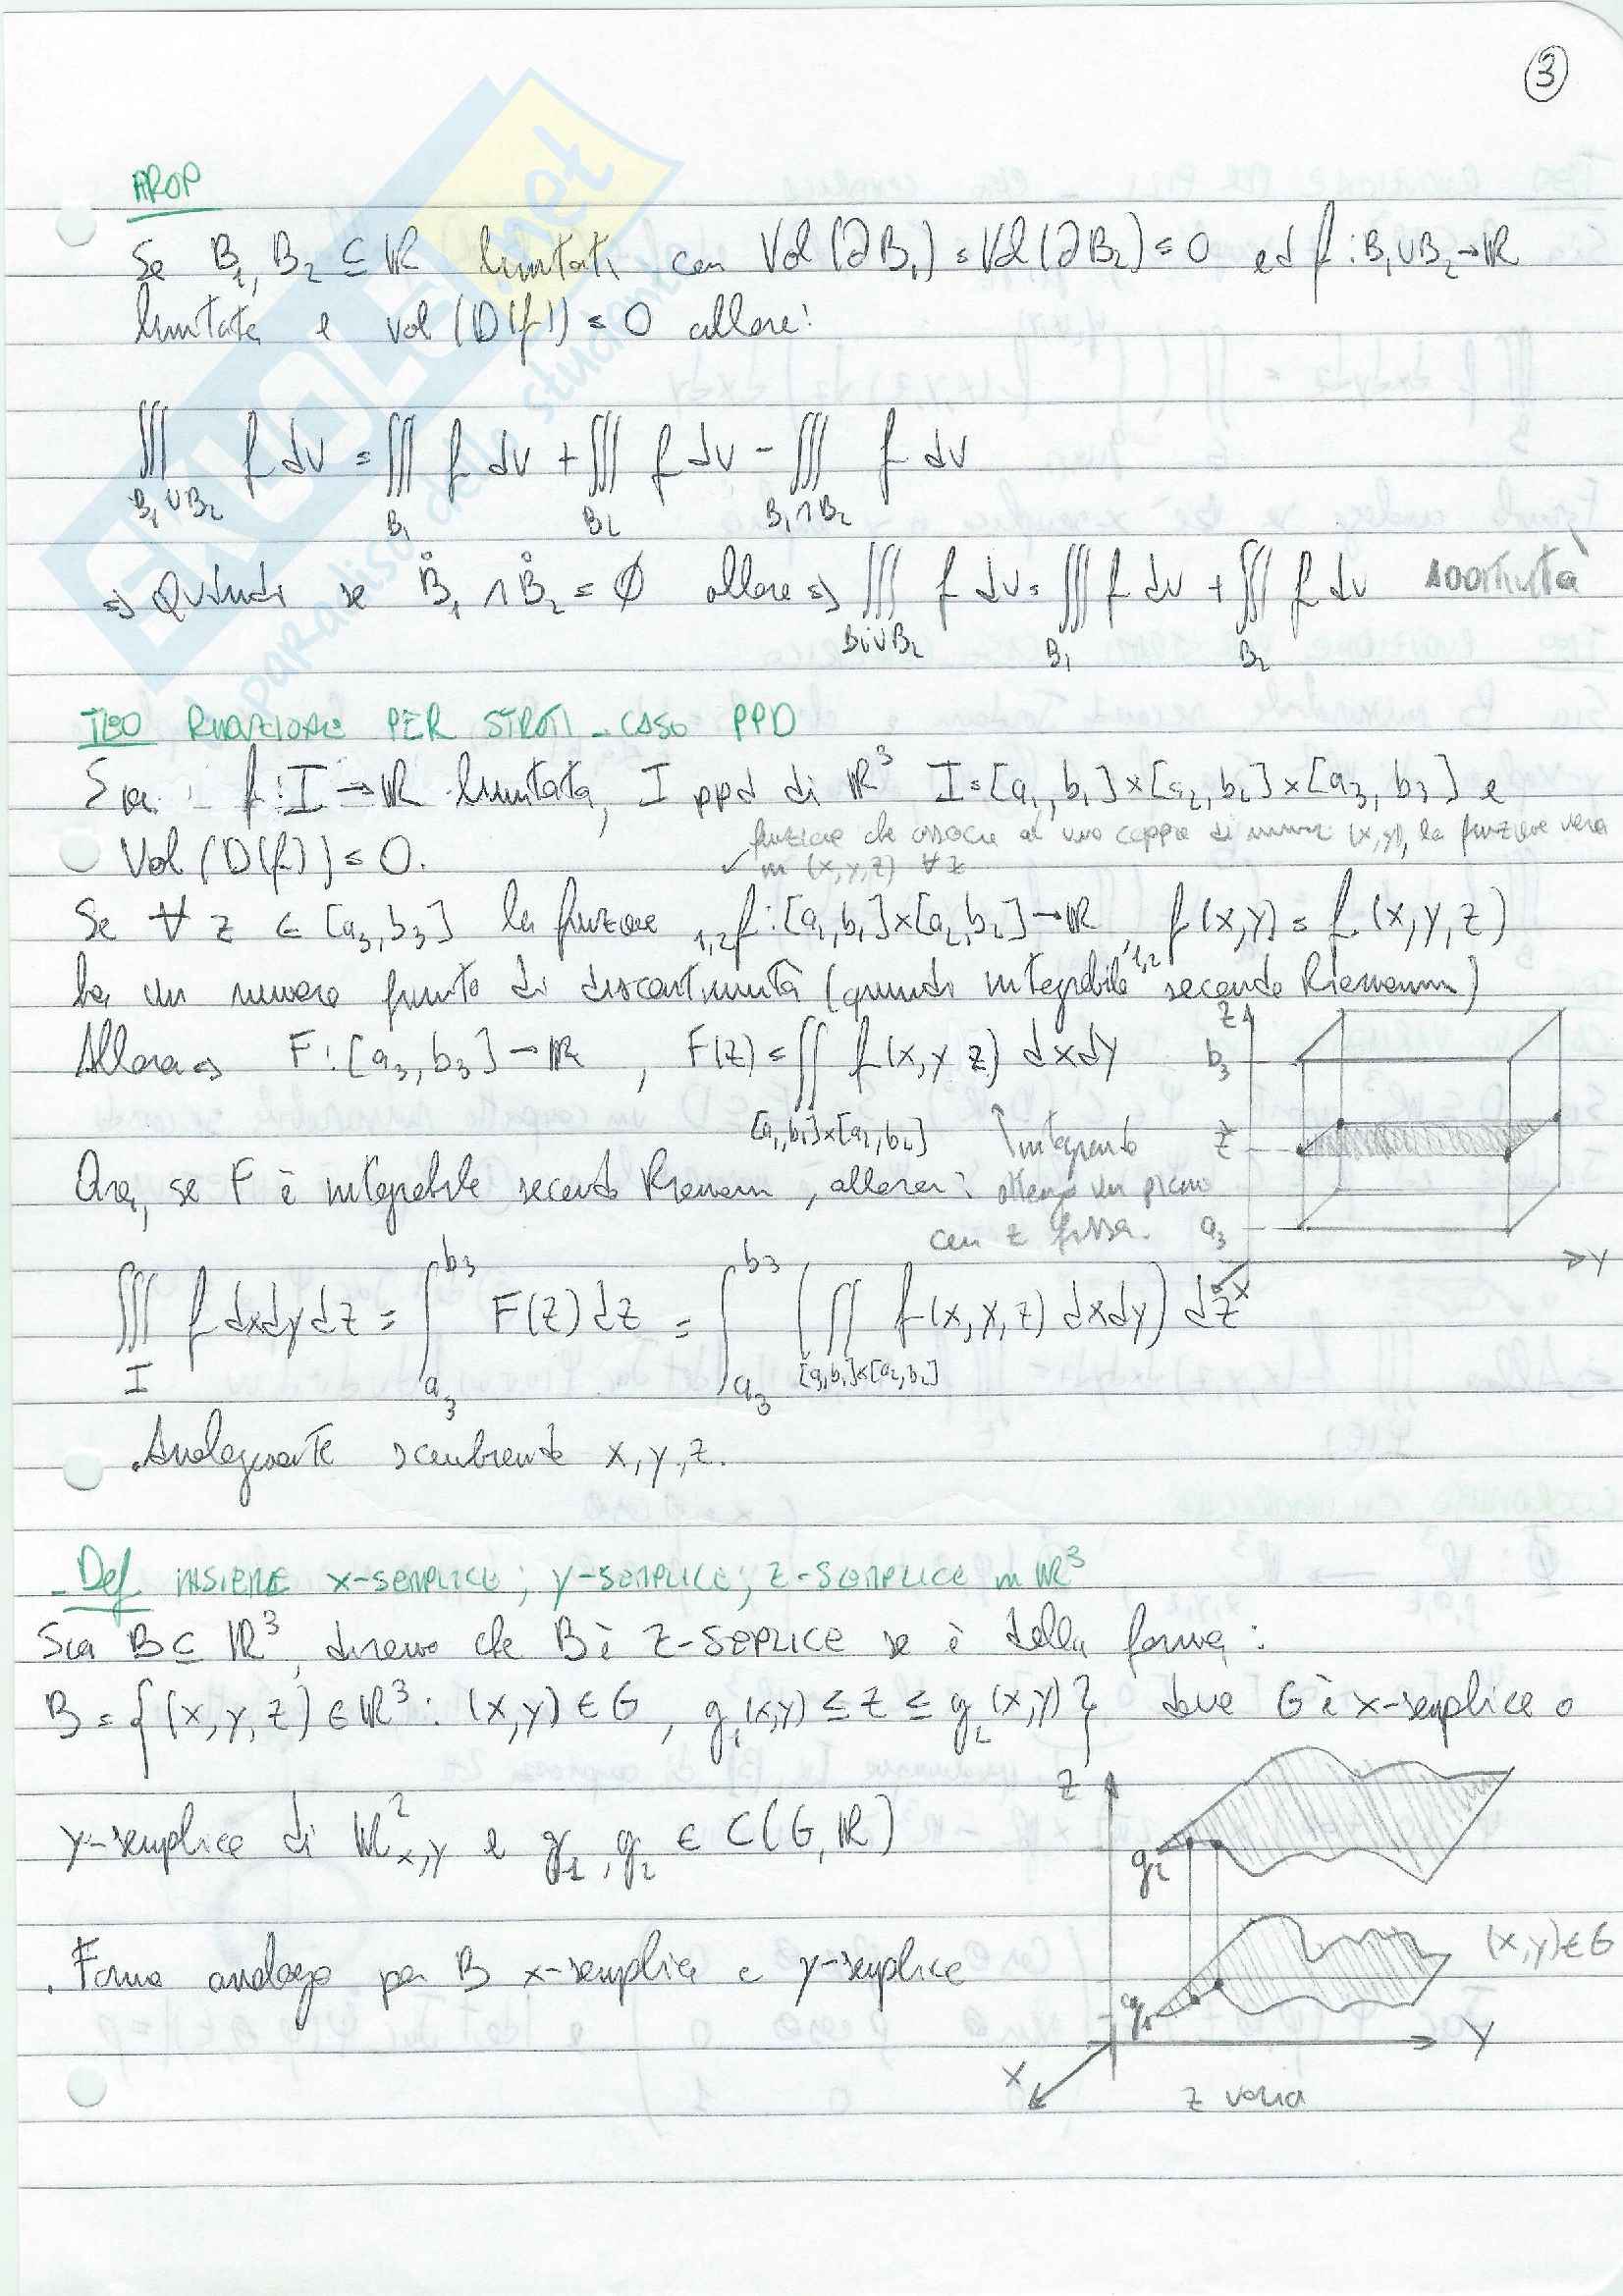 3
PROP
Se B₁, B₂ ⊆ ℝ limitati con Vol(∂B₁) = Vol(∂B₂) = 0 ed f: B₁∪B₂→ℝ
limitata, e vol(D(f)) = 0 allora:
∭_{B₁∪B₂} f dv = ∭_{B₁} f dv + ∭_{B₂} f dv - ∭_{B₁∩B₂} f dv
⇒ Quindi se B̊₁ ∩ B̊₂ = ∅ allora ⇒ ∭_{B₁∪B₂} f dv = ∭_{B₁} f dv + ∭_{B₂} f dv
TEO RIDUZIONE PER STRATI - CASO PPD
Sia f: I → ℝ limitata, I ppd di ℝ³ I = [a₁, b₁]×[a₂, b₂]×[a₃, b₃] e
funzione che associa ad una coppia di numeri (x,y), la funzione vera
Vol(D(f)) = 0.
in (x,y,z) ∀ z
Se ∀ z ∈ [a₃, b₃] la funzione ₁,₂f: [a₁, b₁]×[a₂, b₂]→ℝ, ₁,₂f(x,y) = f(x,y,z)
ha un numero finito di discontinuità (quindi integrabile secondo Riemann)
Allora ⇒ F: [a₃, b₃] → ℝ, F(z) = ∬_{[a₁,b₁]×[a₂,b₂]} f(x,y z) dxdy
z
b₃
z
a₃
Y
x
↑ integrando
ottengo un piano
con z fissa.
Ora, se F è integrabile secondo Riemann, allora:
∭_I f dxdydz = ∫_{a₃}^{b₃} F(z) dz = ∫_{a₃}^{b₃} (∬_{[a₁,b₁]×[a₂,b₂]} f(x,y,z) dxdy) dz
. Analogamente scambiando x, y, z.
- Def INSIEME X-SEMPLICE; Y-SEMPLICE; Z-SEMPLICE in ℝ³
Sia B ⊆ ℝ³, diremo che B è Z-SEPLICE se è della forma:
B = {(x,y,z) ∈ ℝ³: (x,y) ∈ G, g₁(x,y) ≤ z ≤ g₂(x,y)} dove G è x-semplice o
y-semplice di ℝ²_{x,y} e g₁, g₂ ∈ C(G, ℝ)
z
g₂
. Forma analoga per B x-semplice e y-semplice
(x,y) ∈ G
g₁
Y
X
z varia
SKUOLA.net
il paradiso dello studente